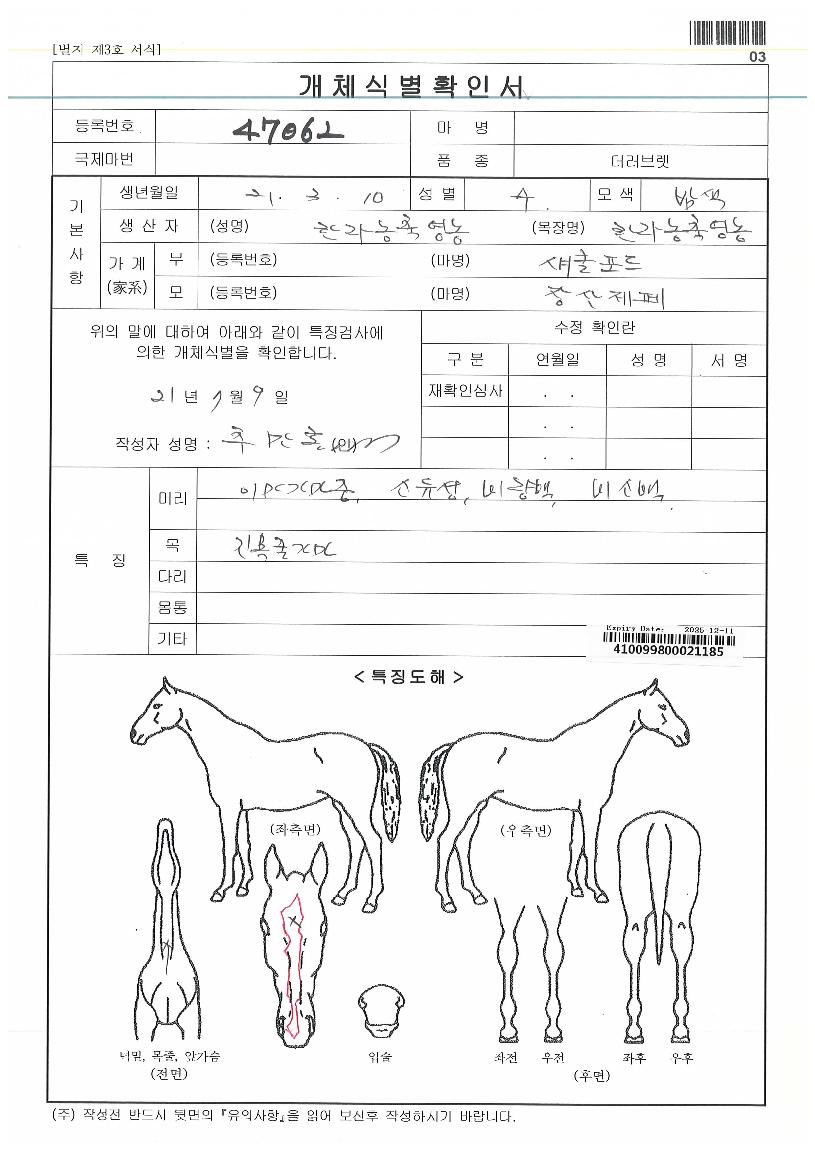 [별지 제3호 서식]
03
개체식별확인서
등록번호 47062 마 명
국제마번 품 종 더러브렛
기본사항
생년월일 21. 3. 10 성 별 수 모 색 밤색
생 산 자 (성명) 한라농축영농 (목장명) 한라농축영농
가 계 (家系) 부 (등록번호) (마명) 섀클포드
모 (등록번호) (마명)
위의 말에 대하여 아래와 같이 특징검사에
의한 개체식별을 확인합니다.
21년 7월 9일
작성자 성명 : 추 (인)
수정 확인란
구 분 연월일 성 명 서 명
재확인심사 . .
. .
. .
특 징
머리 소유성, 비량백, 비소백
목
다리
몸통
기타
Expiry Date: 2025-12-11
410099800021185
< 특징도해 >
(좌측면) (우측면)
너밑, 목줄, 앞가슴 입술 좌전 우전 좌후 우후
(전면) (후면)
(주) 작성전 반드시 뒷면의 『유의사항』을 읽어 보신후 작성하시기 바랍니다.